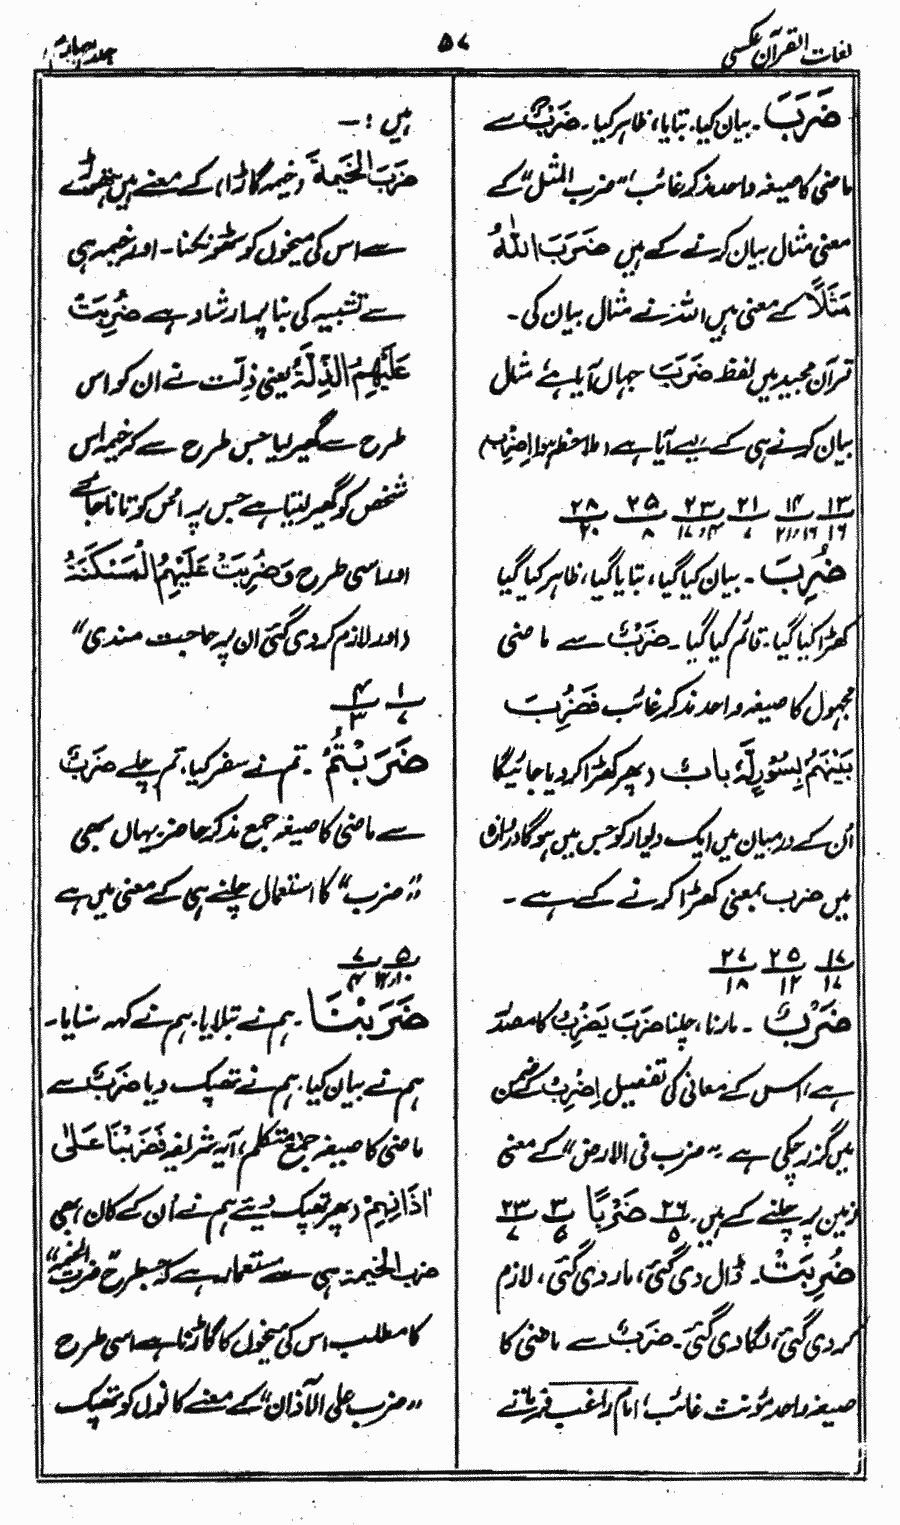 لغات القرآن عکسی
۵۷
جلد چہارم
ضَرَبَ ۔ بیان کیا۔ بتایا، ظاہر کیا ۔ ضَرْبٌ سے
ماضی کا صیغہ واحد مذکر غائب، "ضرب المثل" کے
معنی مثال بیان کرنے کے ہیں ضَرَبَ اللّٰهُ
مَثَلًا کے معنی ہیں اللہ نے مثال بیان کی ۔
قرآن مجید میں لفظ ضَرَبَ جہاں آیا ہے مثل
بیان کرنے ہی کے لیے آیا ہے، ملاحظہ ہو اِضْرِبْ
۱۳ ۱۴ ۲۱ ۲۳ ۲۵ ۲۸
۱۶ ۲۱،۱۶ ۷ ۱۷،۴ ۸ ۲۰
ضُرِبَ ۔ بیان کیا گیا، بتایا گیا، ظاہر کیا گیا
کھڑا کیا گیا، قائم کیا گیا ۔ ضَرْبٌ سے ماضی
مجہول کا صیغہ واحد مذکر غائب فَضُرِبَ
بَيْنَهُمْ بِسُوْرٍ لَّهٗ بَابٌ (پھر کھڑا کر دیا جائیگا
اُن کے درمیان میں ایک دیوار کو جس میں ہوگا دروازہ
میں ضرب بمعنی کھڑا کرنے کے ہے ۔
۱۷ ۲۵ ۲۷
۱۷ ۱۲ ۱۸
ضَرْبٌ ۔ مارنا، چلنا ضَرَبَ یَضْرِبُ کا مصدر
ہے، اس کے معانی کی تفصیل اِضْرِبْ کے ضمن
میں گزر چکی ہے ۔ "ضرب فی الارض" کے معنی
زمین پر چلنے کے ہیں۔ ۲۶ ضَرْبًا ۳ ۲۳
۵ ۵ ۷
ضُرِبَتْ ۔ ڈال دی گئی، مار دی گئی، لازم
کر دی گئی، لگا دی گئی ۔ ضَرْبٌ سے ماضی کا
صیغہ واحد مؤنث غائب، امام راغب فرماتے
ہیں :۔
ضَرَبَ الْخَيْمَةَ (خیمہ گاڑا) کے معنے ہیں ہتھوڑے
سے اس کی میخوں کو ٹھونکنا ۔ اور خیمہ ہی
سے تشبیہ کی بنا پر ارشاد ہے ضُرِبَتْ
عَلَيْهِمُ الذِّلَّةُ یعنی ذلّت نے ان کو اس
طرح سے گھیر لیا جس طرح سے کہ خیمہ اس
شخص کو گھیر لیتا ہے جس پر اس کو تانا جائے
اور اسی طرح وَضُرِبَتْ عَلَيْهِمُ الْمَسْكَنَةُ
(اور لازم کر دی گئی ان پر حاجت مندی"
۱ ۴
۷ ۳
ضَرَبْتُمْ ۔ تم نے سفر کیا۔ تم چلے ضَرْبٌ
سے ماضی کا صیغہ جمع مذکر حاضر، یہاں بھی
"ضرب" کا استعمال چلنے ہی کے معنی میں ہے
۵ ۷
ضَرَبْنَا ۔ ہم نے بتلایا۔ ہم نے کہہ سنایا۔
ہم نے بیان کیا۔ ہم نے تھپک دیا ضَرْبٌ سے
ماضی کا صیغہ جمع متکلم، آیہ شریفہ فَضَرَبْنَا عَلٰى
اٰذَانِهِمْ (پھر تھپک دیئے ہم نے اُن کے کان) بھی
ضرب الخیمۃ ہی سے مستعار ہے کہ جس طرح "ضربت الخیمہ"
کا مطلب اس کی میخوں کا گاڑنا ہے اسی طرح
"ضرب علی الآذان" کے معنے کانوں کو تھپک